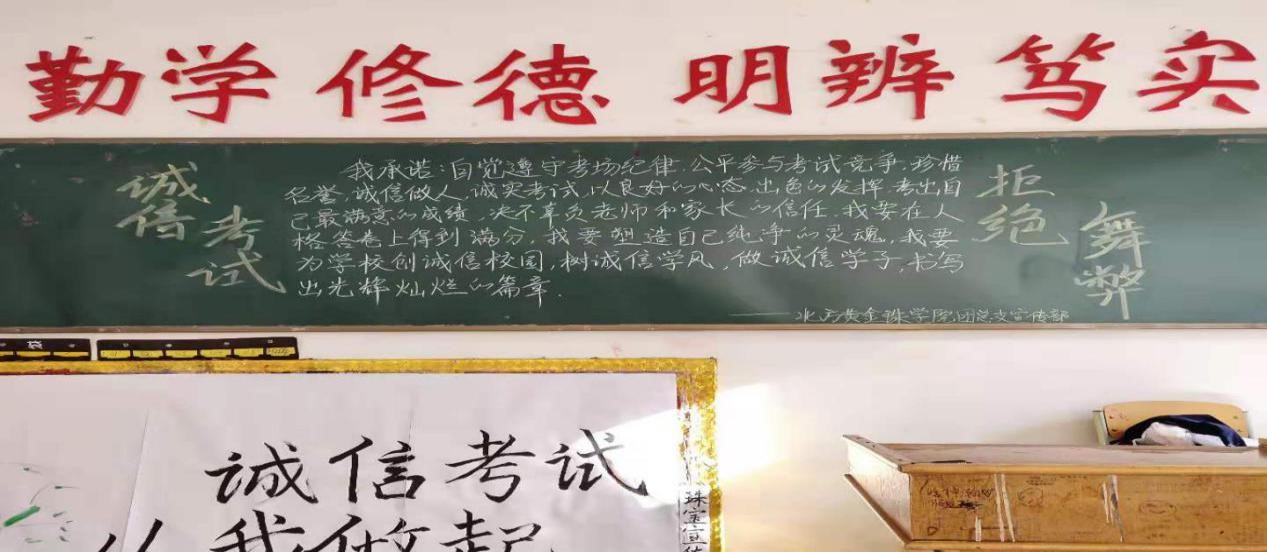 勤学 修德 明辨 笃实
诚信
考试
我承诺:自觉遵守考场纪律.公平参与考试竞争,珍惜
名誉,诚信做人,诚实考试,以良好的心态,出色的发挥,考出自
己最满意的成绩,决不辜负老师和家长的信任,我要在人
格答卷上得到满分,我要塑造自己纯净的灵魂,我要
为学校创诚信校园,树诚信学风,做诚信学子,书写
出光辉灿烂的篇章.
拒绝
舞弊
黄金珠学院团总支宣传部
诚信考试
从我做起
珠宝宣传